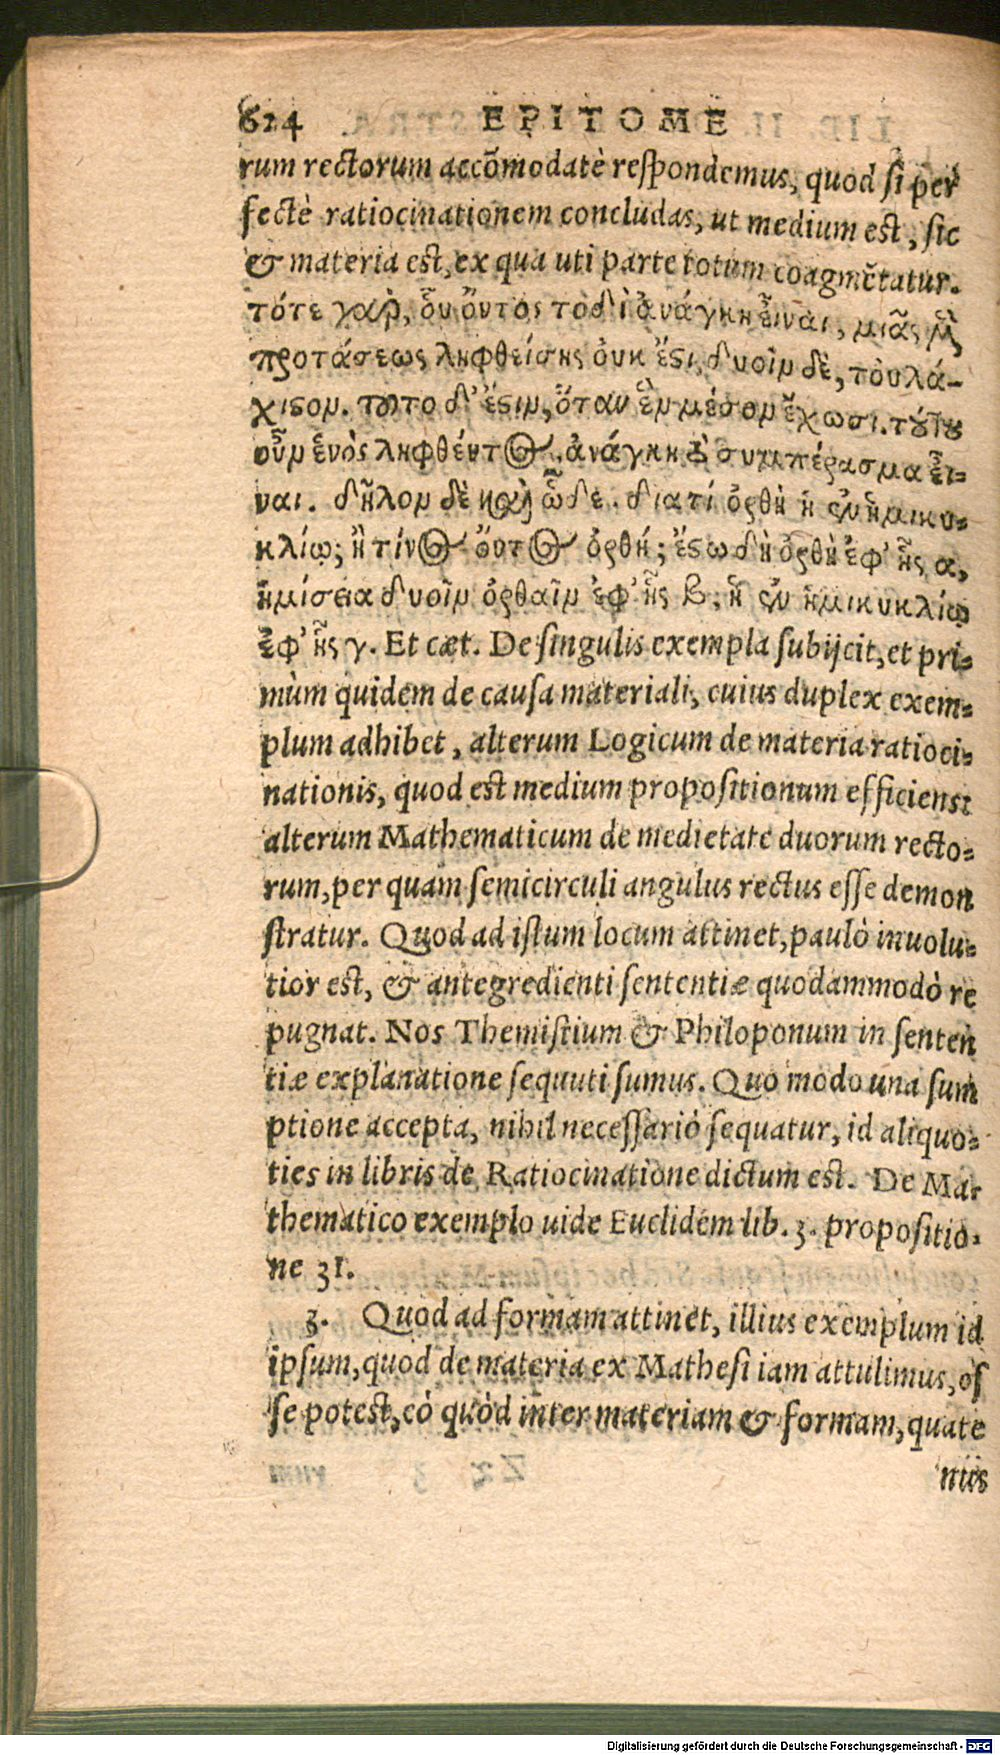 624 EPITOME
rum rectorum accõmodatè respondemus, quod si per
fectè ratiocinationem concludas, ut medium est, sic
& materia est, ex qua uti parte totum coagmẽtatur.
τότε γὰρ, οὗ ὄντος τοδὶ ἀνάγκη εἶναι, μιᾶς μὲν
προτάσεως ληφθείσης οὐκ ἔστι, δυοῖν δὲ, τοὐλά-
χιστον. τοῦτο δ' ἔστιν, ὅταν ἓν μέσον ἔχωσι. τούτου
οὖν ἑνὸς ληφθέντος, ἀνάγκη τὸ συμπέρασμα εἶ-
ναι. δῆλον δὲ καὶ ὧδε. διατί ὀρθὴ ἡ ἐν ἡμικυ-
κλίῳ; ἢ τίνος ὄντος ὀρθή; ἔστω δὴ ὀρθὴ ἐφ' ἧς α,
ἡμίσεια δυοῖν ὀρθαῖν ἐφ' ἧς β, ἡ ἐν ἡμικυκλίῳ
ἐφ' ἧς γ. Et cæt. De singulis exempla subijcit, et pri-
mùm quidem de causa materiali, cuius duplex exem-
plum adhibet, alterum Logicum de materia ratioci-
nationis, quod est medium propositionum efficiens:
alterum Mathematicum de medietate duorum recto-
rum, per quam semicirculi angulus rectus esse demon
stratur. Quod ad istum locum attinet, paulò inuolu-
tior est, & antegredienti sententiæ quodammodò re
pugnat. Nos Themistium & Philoponum in senten
tiæ explanatione sequuti sumus. Quo modo una sum
ptione accepta, nihil necessariò sequatur, id aliquo-
ties in libris de Ratiocinatione dictum est. De Ma-
thematico exemplo uide Euclidem lib. 3. propositio-
ne 31.
3. Quod ad formam attinet, illius exemplum id
ipsum, quod de materia ex Mathesi iam attulimus, es
se potest, eò quòd inter materiam & formam, quate
nus
Digitalisierung gefördert durch die Deutsche Forschungsgemeinschaft - DFG